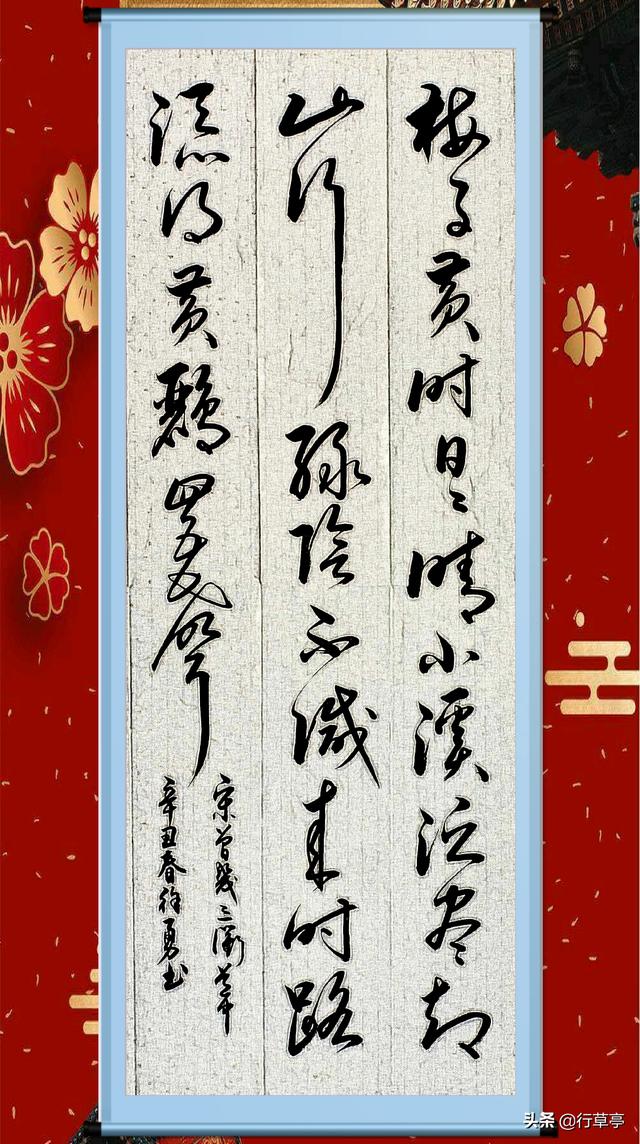 梅子黄时日日晴小溪泛尽却
山行绿阴不减来时路
添得黄鹂四五声
宋曾几三衢道中
辛丑春徐勇书
头条 @行草亭